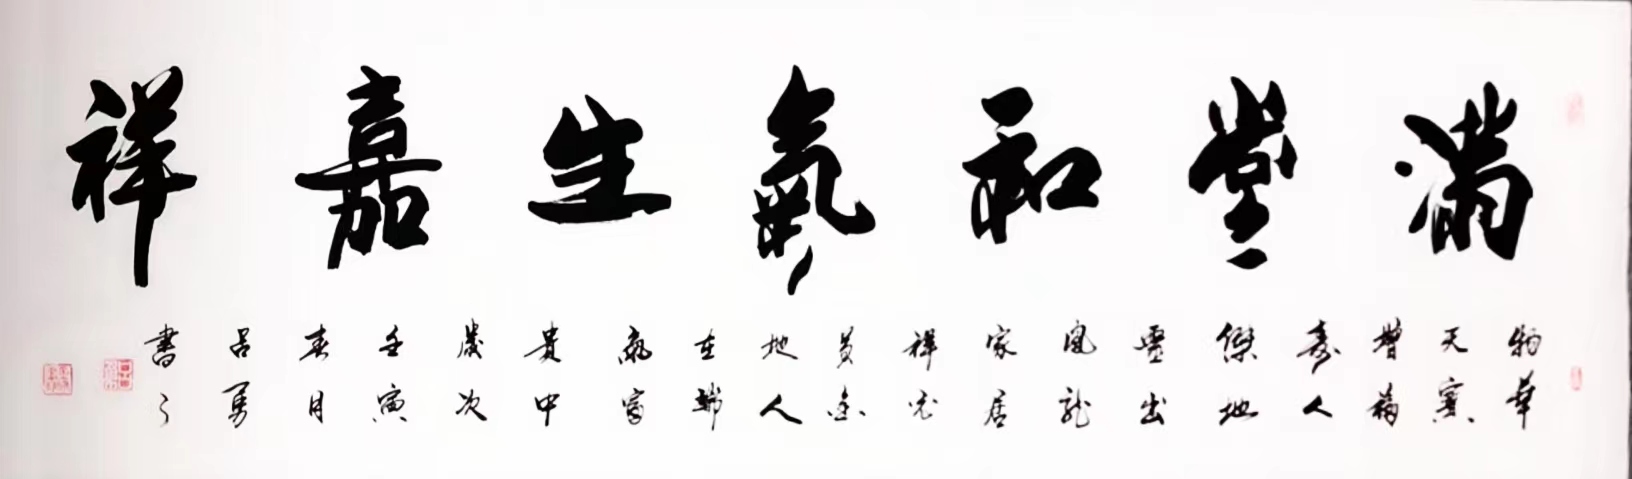 滿堂和氣生嘉祥
物華
天寶
增福
壽人
傑地
靈出
鳳龙
家居
祥光
黃金
地人
在瑞
氣富
貴中
歲次
壬寅
春月
呂勇
書之